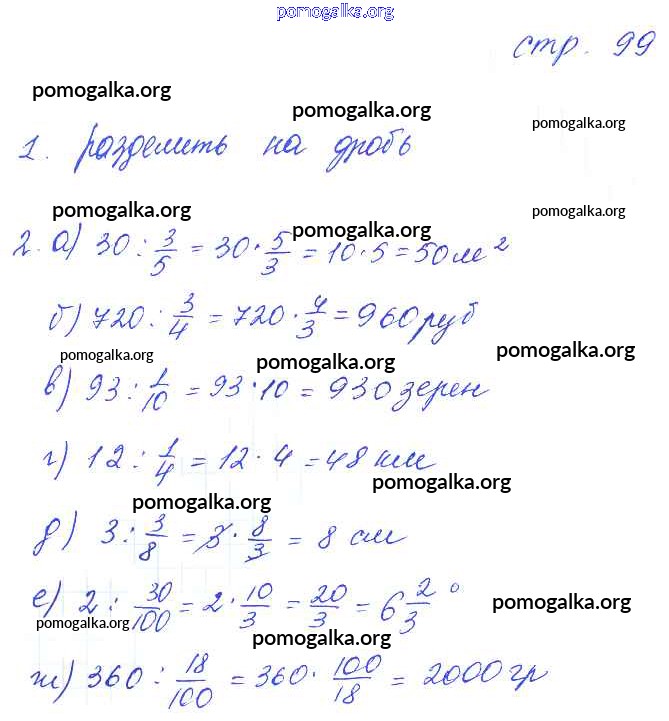 pomogalka.org
стр. 99
pomogalka.org
pomogalka.org
pomogalka.org
1. разделить на дробь
pomogalka.org
pomogalka.org
pomogalka.org
2. а) 30 : 3/5 = 30 · 5/3 = 10 · 5 = 50 м²
б) 720 : 3/4 = 720 · 4/3 = 960 руб
pomogalka.org
pomogalka.org
pomogalka.org
в) 93 : 1/10 = 93 · 10 = 930 зерен
г) 12 : 1/4 = 12 · 4 = 48 км
pomogalka.org
pomogalka.org
д) 3 : 3/8 = 3 · 8/3 = 8 см
е) 2 : 30/100 = 2 · 10/3 = 20/3 = 6 2/3 °
pomogalka.org
pomogalka.org
pomogalka.org
ж) 360 : 18/100 = 360 · 100/18 = 2000 гр